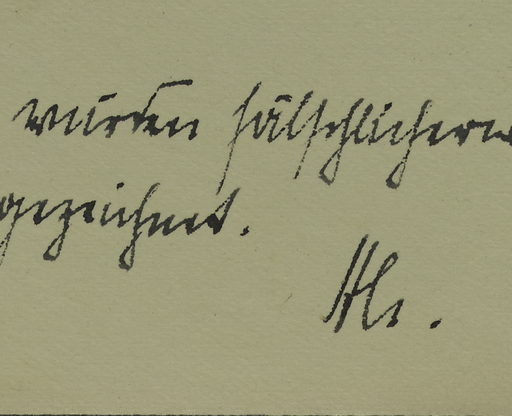 wurden fälschlicherw
gezeichnet.